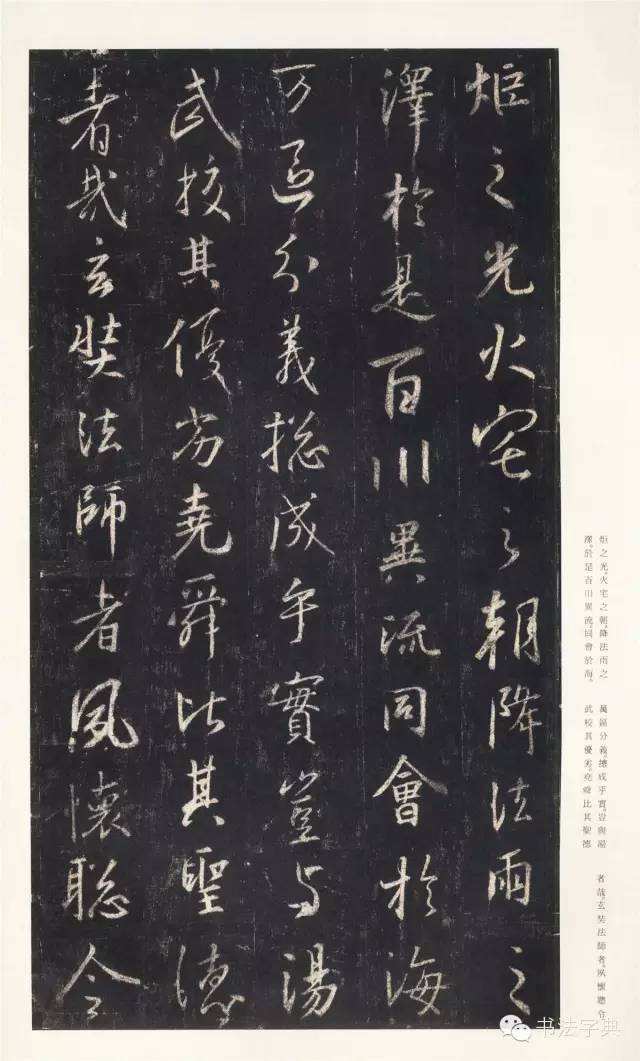 炬之光火宅之朝降法雨之
澤於是百川異流同會於海
万區分義捴成乎實豈与湯
武挍其優劣堯舜比其聖德
者哉玄奘法師者夙懷聦令
炬之光。火宅之朝,降法雨之
澤。於是百川異流。同會於海。
萬區分義。總成乎實。豈與湯
武校其優劣。堯舜比其聖德
者哉。玄奘法師者。夙懷聰令。
书法字典